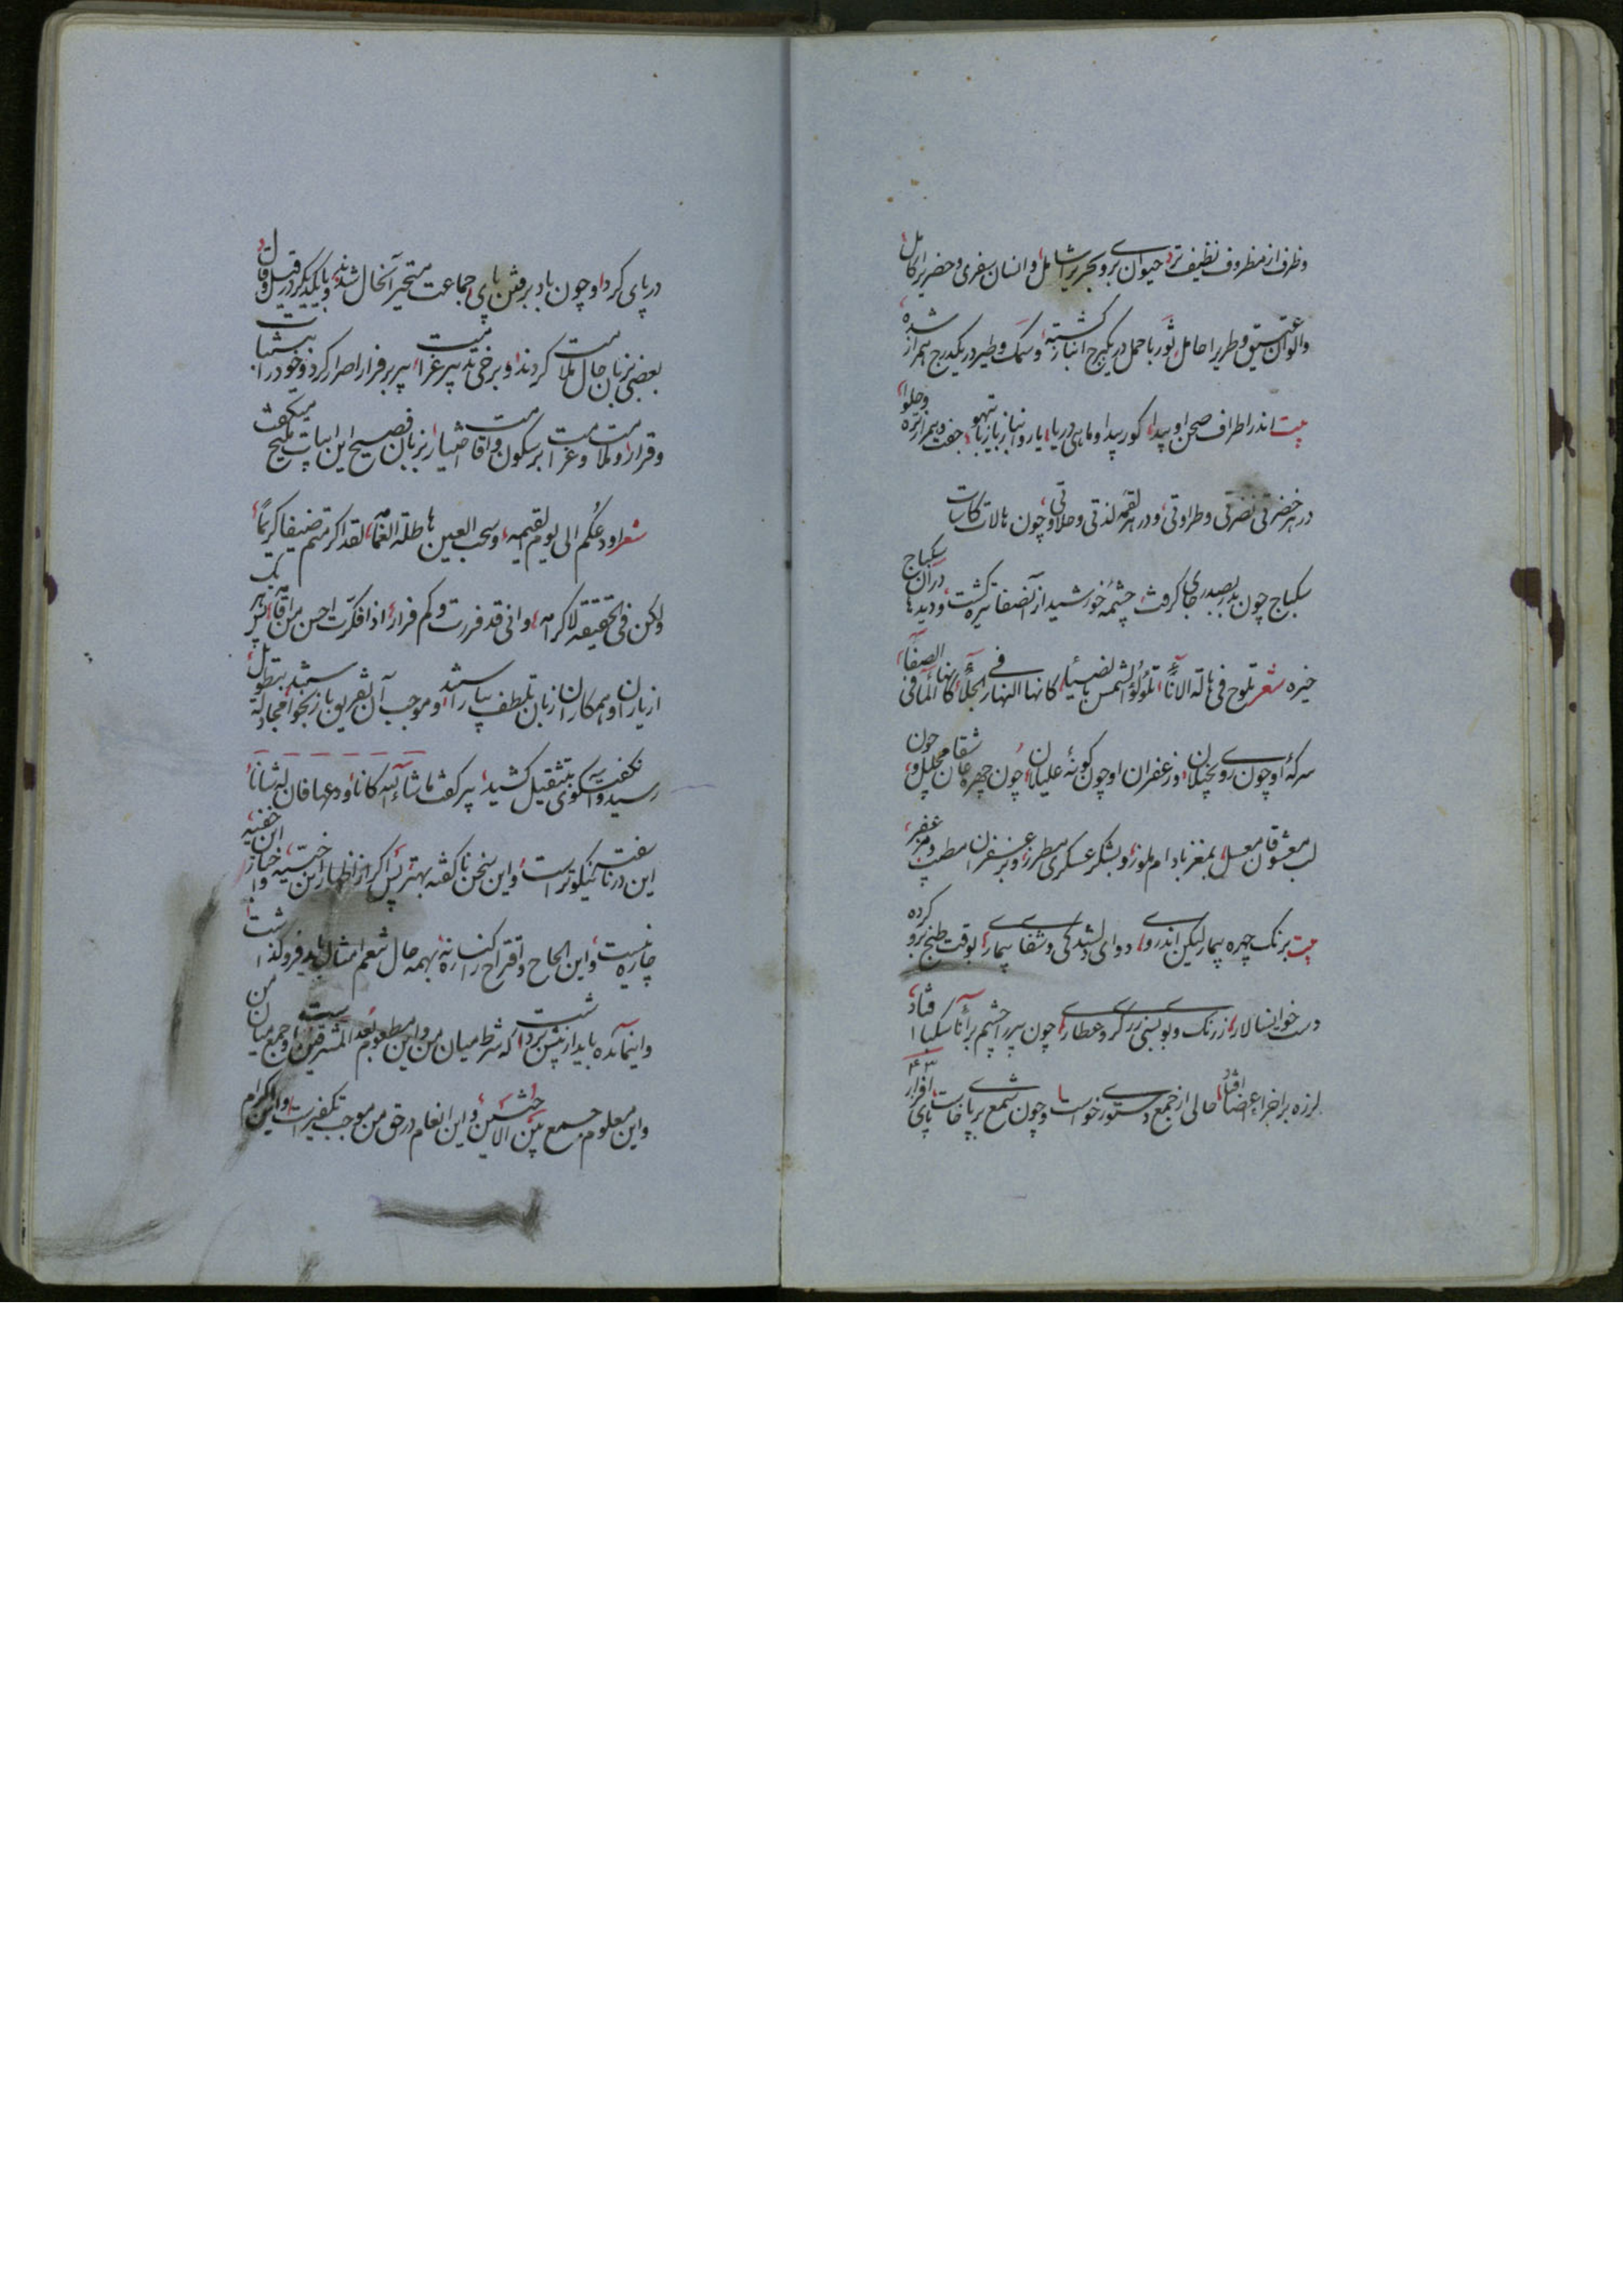 وظرف از مظروف نظیف تر، حیوان بری و بحری را شامل و انسان سفری و حضری را کامل
والوان عتیق و طری را حامل، ثور با حمل در یکبرج انباز گشته، و سمک و طیر در یکدرج همراز شده
بیت اندر اطراف صحن او پیدا، گور پیدا و ماهی دریا، یار و انباز باز با تیهو، جفت و همراز تره و حلوا
در هر خضرتی نضرتی و طراوتی، و در هر لقمه لذتی و حلاوتی، چون هالات کاسات
سکباج چون بدر بصدر جای گرفت، چشمه خورشید از آن صفا تیره گشت، و دیدها در آن سکباج
خیره شعر تلوح فی هالة الاناء، تلؤلؤ الشمس بالضیاء، کانها النهار فی الجلاء، کانها المآء فی الصفآء
سرکهٔ او چون روی بخیلان، و زعفران او چون گونهٔ علیلان، چون چهره عاشقان مجلل، و چون
لب معشوقان معسل، بمغز بادام ملوز، و بشکر عسکری مطرز، و بزعفران مطیب و مزعفر
بیت برنگ چهره بیمار لیکن اندرو، دوای دلشدگی و شفای بیماری، بوقت طبخ برو کرده
دست خوانسالار، ز رنگ و بوی بسی زرگری و عطاری، چون پیر را چشم بر اناء سکبا فتاد
لرزه بر اجزا و اعضا افتاد، حالی از جمع دستوری خواست، و چون شمع بر پا خاست، پای افزار
در پای کرد، و چون باد برفتن پای، جماعت متحیر آنحال شدند، و با یکدیگر در قیل و قال
بعضی بزبان حال ملامت کردند، و برخی تدبیر غرامت، پیر بر فرار اصرار کرد، و خود را بی ثبات
و قرار، و ملامت و غرامت بر سکون و اقامت اختیار، بزبان فصیح این ابیات ملیح میگفت
شعر اودعکم الی یوم القیمه، و سحب العین هاطلة الغمامه، لقد اکرمتم ضیفا کریماً
ولکن فی الحقیقة لا کرامه، و انی قد فررت و کم فرار، اذا فکرت احسن من اقامه
از یاران و همکاران زبان تلطف بیاراستند، و موجب آن تفریق باز بجوا، مجادله بتطویل
رسید و گفت و گوی بتثقیل کشید، پیر گفت ما شاء الله کان، او دعها فان له شانا
این در ناسفته نیکوتر است، و این سخن ناگفته بهتر، پس اگر از اظهار این خبیه، و ابراز این خفیه
چاره نیست، و این الحاح و اقتراح را کناره نه، بهمه حال شعم امثال باید فرو گذاشت
و این مآئده باید از پیش برداشت، که شرط میان من و این مطعوم بعد المشرقین است، و جمع میان من
و این معلوم جمع بین الاختین، و این انعام در حق من موجب تکفیر است، و این اکرام